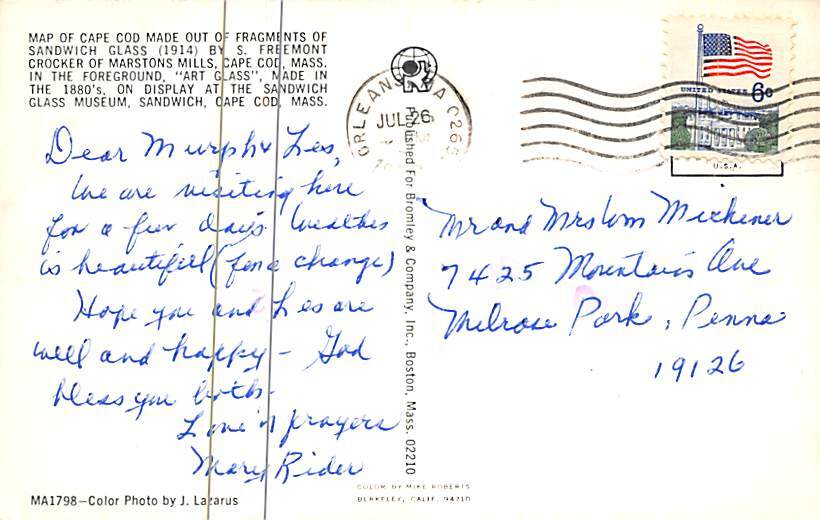 MAP OF CAPE COD MADE OUT OF FRAGMENTS OF
SANDWICH GLASS (1914) BY S. FREEMONT
CROCKER OF MARSTONS MILLS, CAPE COD, MASS.
IN THE FOREGROUND, "ART GLASS", MADE IN
THE 1880's, ON DISPLAY AT THE SANDWICH
GLASS MUSEUM, SANDWICH, CAPE COD, MASS.
Dear Murph & Les,
We are visiting here
for a few days. Weather
is beautiful (for a change)
Hope you and Les are
well and happy - God
bless you both.
Love 'n prayers
Mary Rider
MA1798-Color Photo by J. Lazarus
Published For Bromley & Company, Inc., Boston, Mass. 02210
COLOR BY MIKE ROBERTS
BERKELEY, CALIF. 94710
ORLEANS MA 0265
JUL 26
UNITED STATES 6c
U.S.A.
Mr and Mrs Wm Michener
7425 Mountain Ave
Melrose Park, Penna
19126